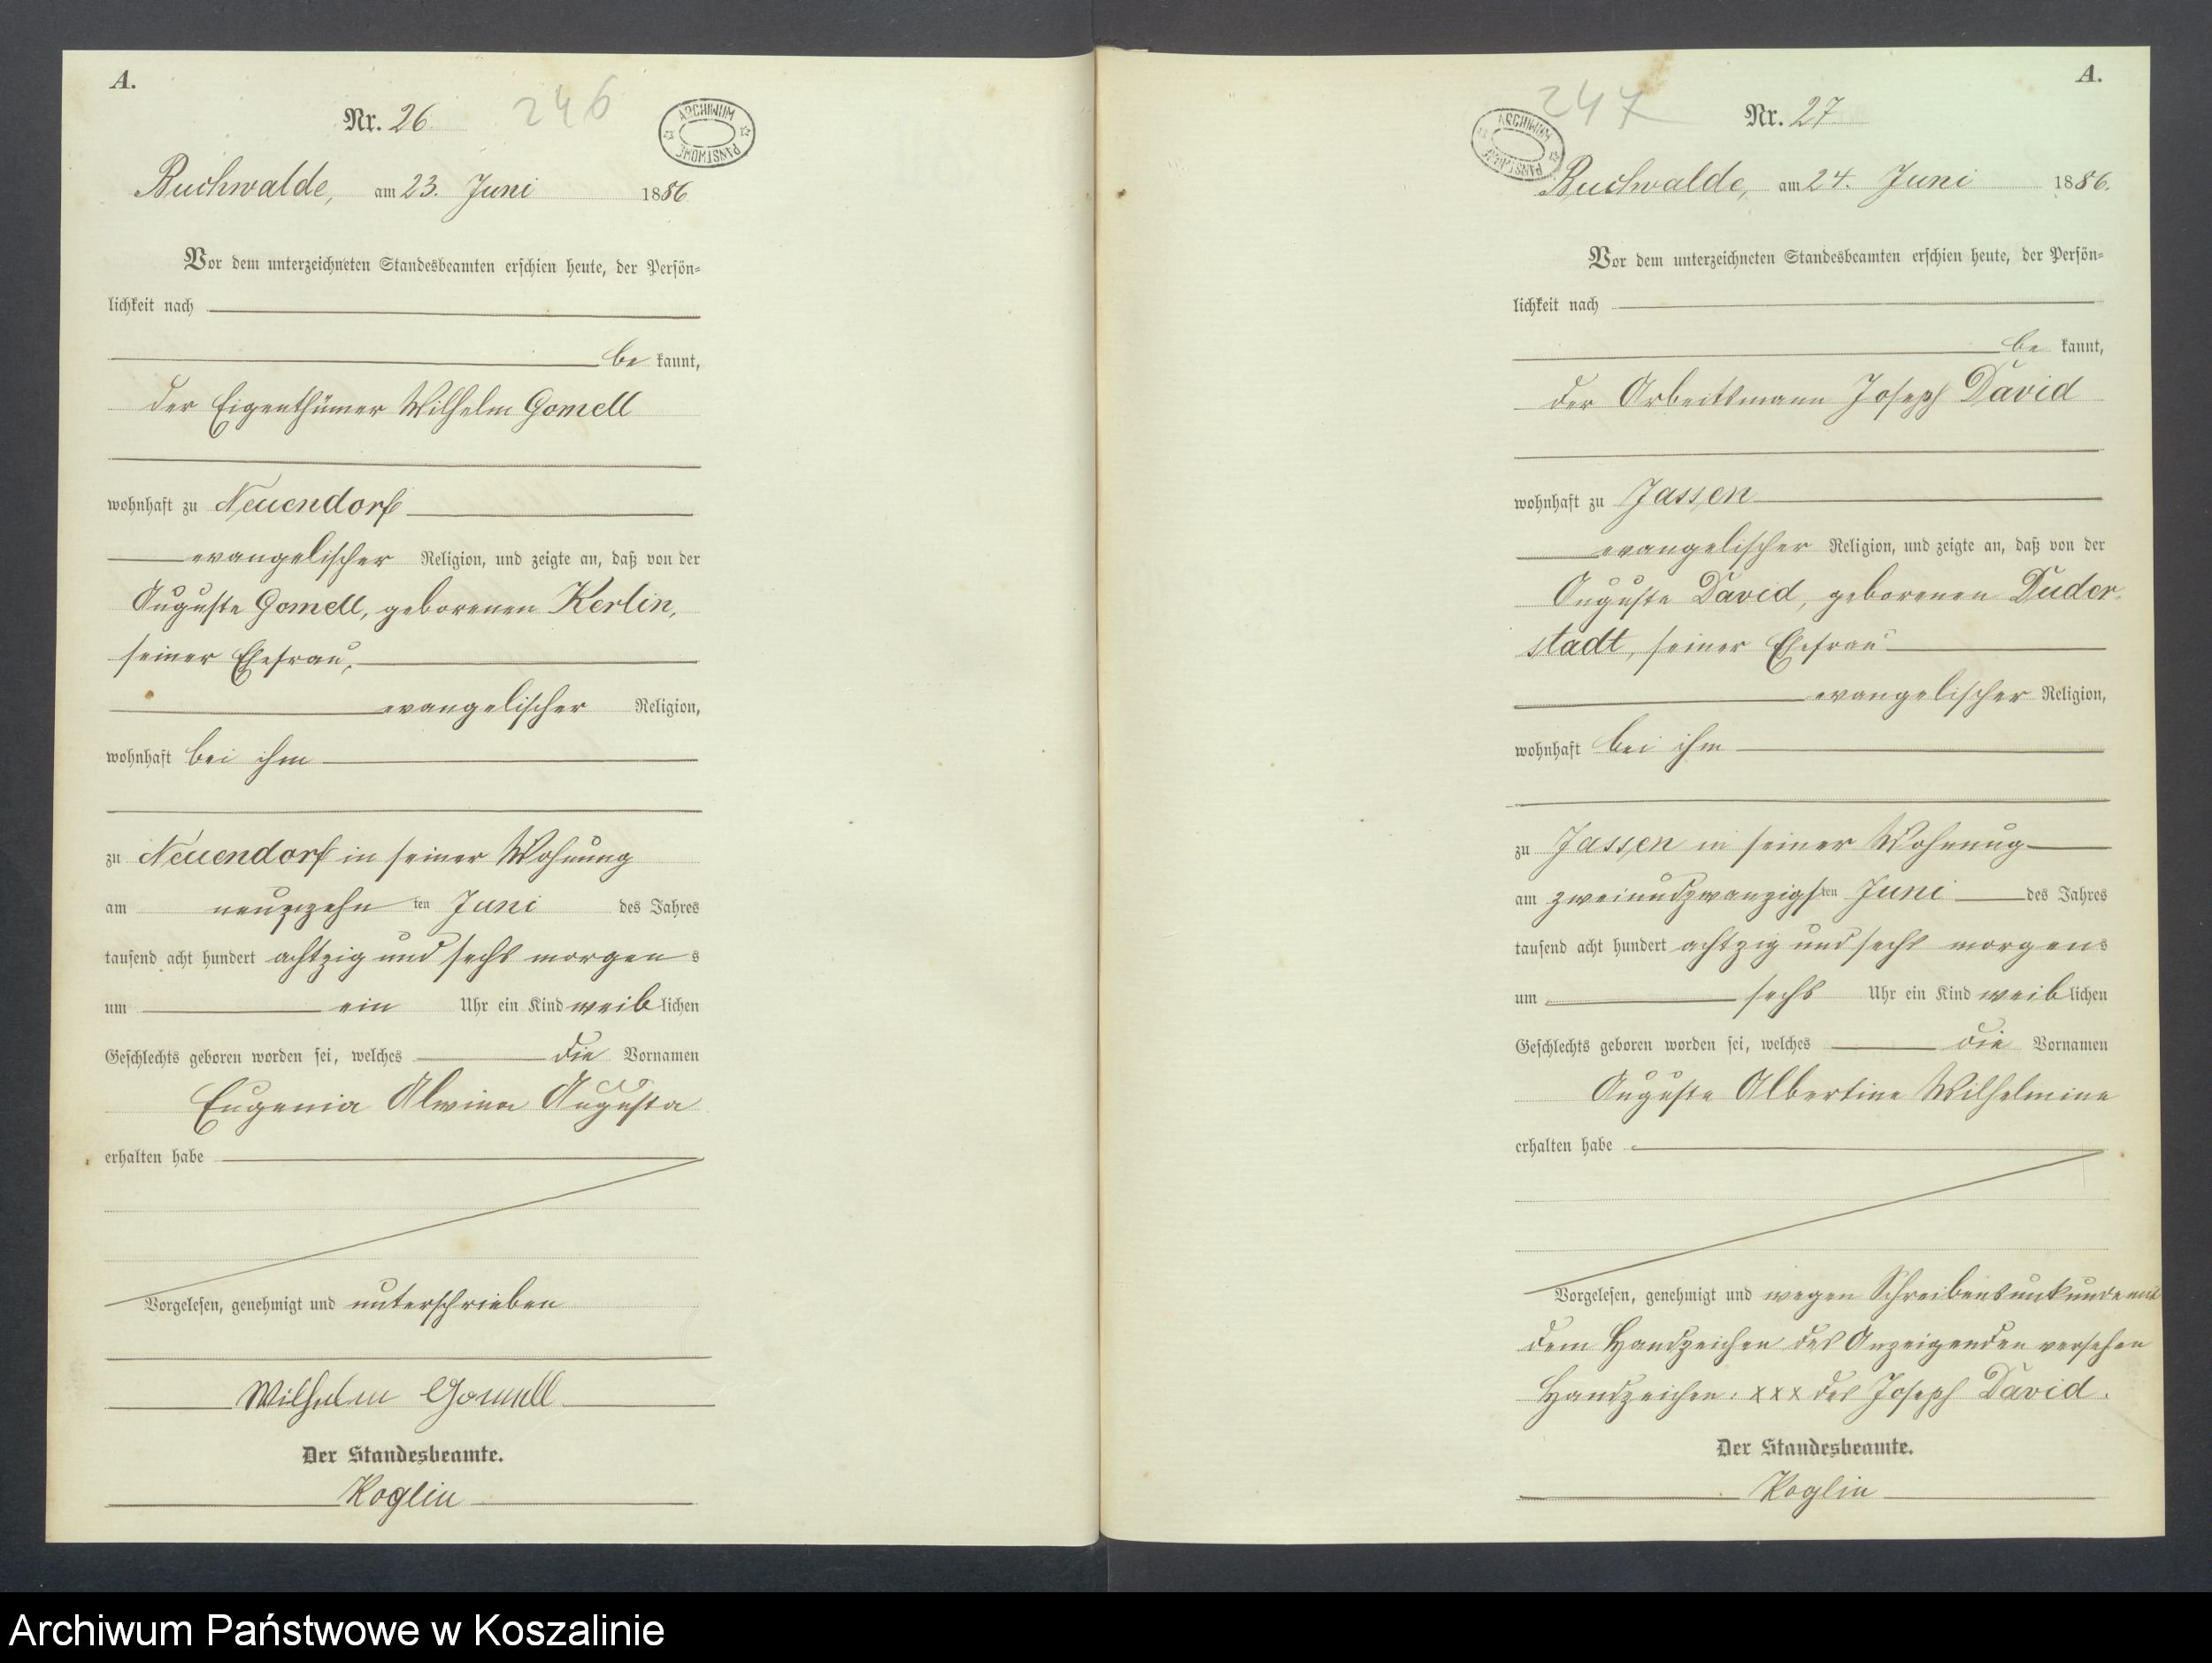 A.
Nr. 26
246
ARCHIWUM PAŃSTWOWE
Buchwalde, am 23. Juni 1886
Vor dem unterzeichneten Standesbeamten erschien heute, der Persön=
lichkeit nach
be kannt,
der Eigenthümer Wilhelm Gomell
wohnhaft zu Neuendorf
evangelischer Religion, und zeigte an, daß von der
Auguste Gomell, geborenen Kerlin,
seiner Ehefrau,
evangelischer Religion,
wohnhaft bei ihm
zu Neuendorf in seiner Wohnung
am neunzehn ten Juni des Jahres
tausend acht hundert achtzig und sechs morgen s
um ein Uhr ein Kind weib lichen
Geschlechts geboren worden sei, welches die Vornamen
Eugenia Alwina Augusta
erhalten habe
Vorgelesen, genehmigt und unterschrieben
Wilhelm Gomell
Der Standesbeamte.
Koglin
A.
247
Nr. 27
ARCHIWUM PAŃSTWOWE
Buchwalde, am 24. Juni 1886.
Vor dem unterzeichneten Standesbeamten erschien heute, der Persön=
lichkeit nach
be kannt,
der Arbeitsmann Joseph David
wohnhaft zu Jassen
evangelischer Religion, und zeigte an, daß von der
Auguste David, geborenen Duder-
stadt, seiner Ehefrau
evangelischer Religion,
wohnhaft bei ihm
zu Jassen in seiner Wohnung
am zweiundzwanzigs ten Juni des Jahres
tausend acht hundert achtzig und sechs morgens
um sechs Uhr ein Kind weib lichen
Geschlechts geboren worden sei, welches die Vornamen
Auguste Albertine Wilhelmine
erhalten habe
Vorgelesen, genehmigt und wegen Schreibensunkunde mit
dem Handzeichen des Anzeigenden versehen
Handzeichen: xxx des Joseph David.
Der Standesbeamte.
Koglin
Archiwum Państwowe w Koszalinie